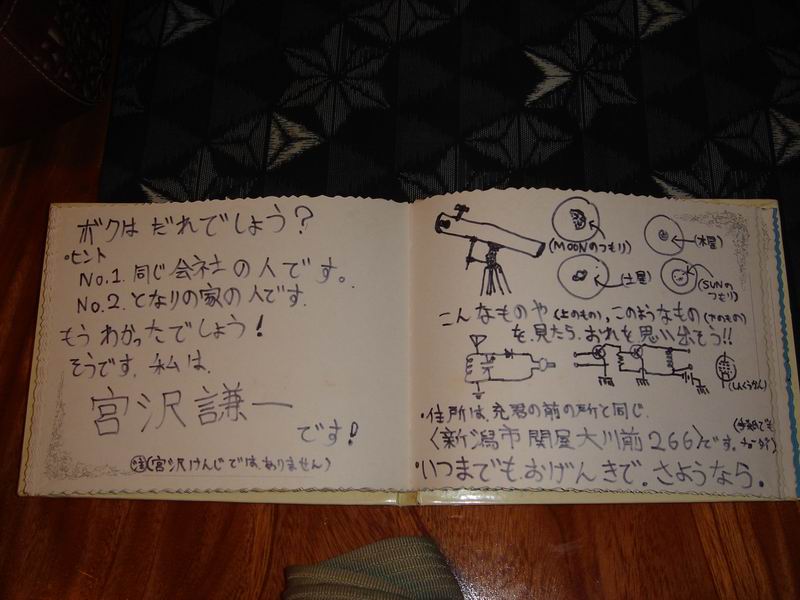 ボクは だれでしょう?
・ヒント
No.1. 同じ会社の人です。
No.2. となりの家の人です.
もう わかったでしょう!
そうです. 私は.
宮沢謙一
です!
注(宮沢けんじでは、ありません)
(MOONのつもり)
(木星)
(土星)
(SUNのつもり)
こんなものや(上のもの), このようなもの(下のもの)
を 見たら, おれを 思い出そう!!
(しんくうかん)
・住所は, 充君の前の所と同じ.
〈新潟市 関屋大川前 266〉です.
いつまでも, おげんきで. さようなら.